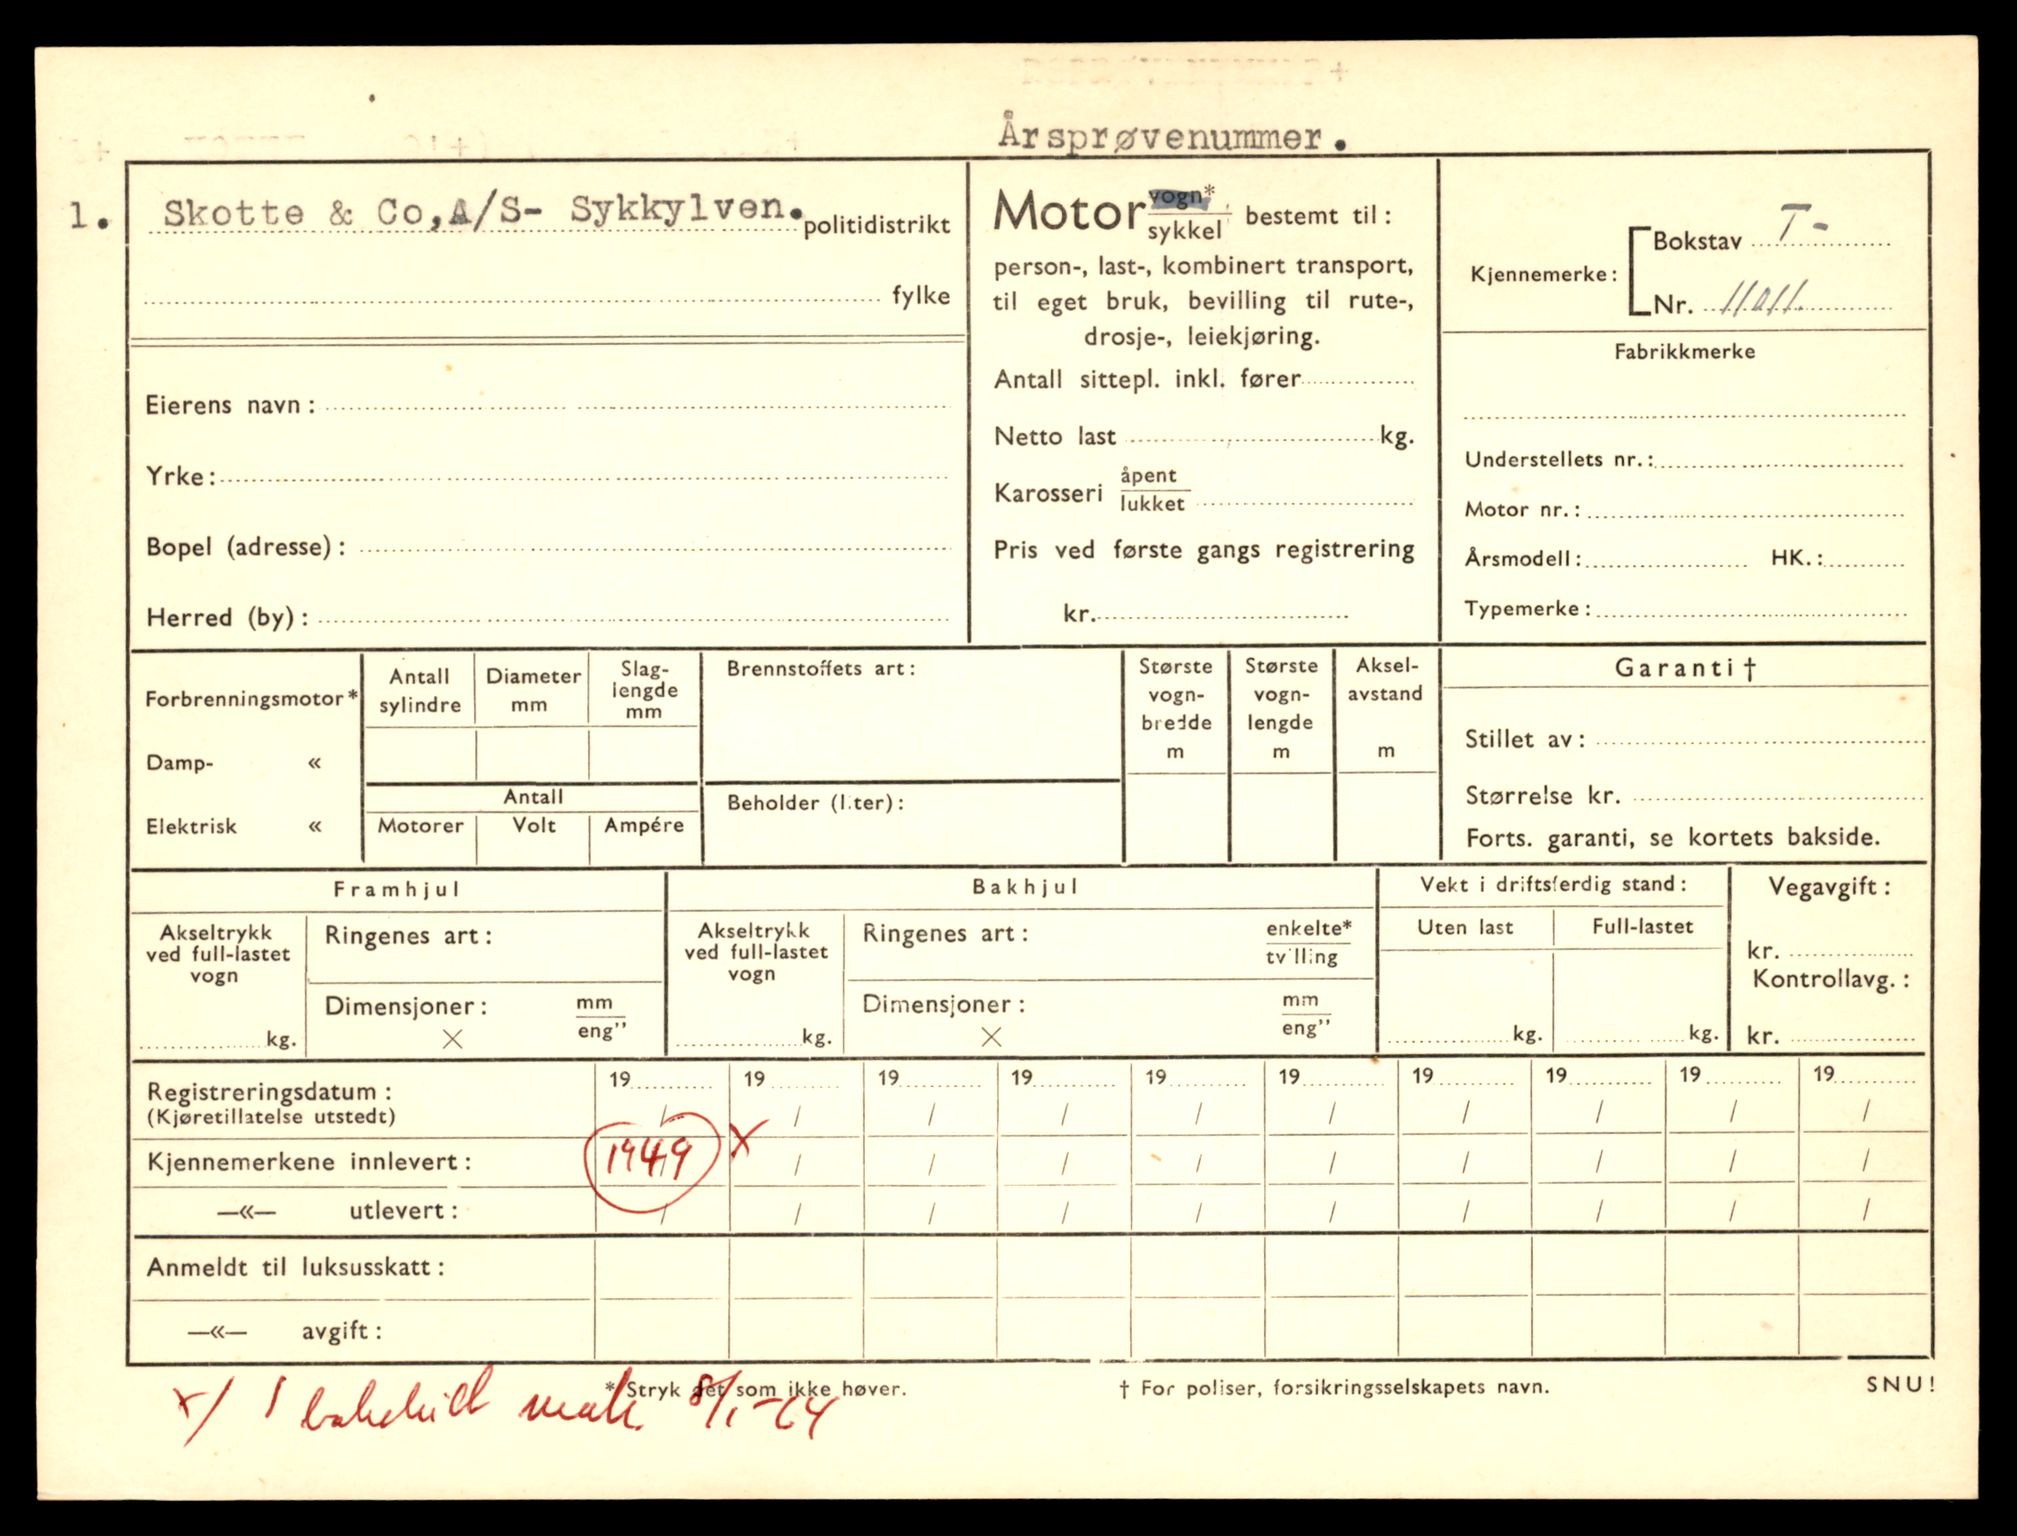 Årsprøvenummer.
1. Skotte & Co,A/S- Sykkylven. politidistrikt
fylke
Eierens navn:
Yrke:
Bopel (adresse):
Herred (by):
Motor vogn*
sykkel bestemt til:
person-, last-, kombinert transport,
til eget bruk, bevilling til rute-,
drosje-, leiekjøring.
Antall sittepl. inkl. fører
Netto last kg.
Karosseri åpent
lukket
Pris ved første gangs registrering
kr.
Kjennemerke: Bokstav T-
Nr. 11011.
Fabrikkmerke
Understellets nr.:
Motor nr.:
Årsmodell: HK.:
Typemerke:
Forbrenningsmotor*
Damp- «
Elektrisk «
Antall
sylindre
Diameter
mm
Slag-
lengde
mm
Antall
Motorer Volt Ampére
Brennstoffets art:
Beholder (liter):
Største
vogn-
bredde
m
Største
vogn-
lengde
m
Aksel-
avstand
m
Garanti †
Stillet av:
Størrelse kr.
Forts. garanti, se kortets bakside.
Framhjul
Akseltrykk
ved full-lastet
vogn
kg.
Ringenes art:
Dimensjoner: mm
× eng”
Bakhjul
Akseltrykk
ved full-lastet
vogn
kg.
Ringenes art: enkelte*
tvilling
Dimensjoner: mm
× eng”
Vekt i driftsferdig stand:
Uten last Full-lastet
kg. kg.
Vegavgift:
kr.
Kontrollavg.:
kr.
19 19 19 19 19 19 19 19 19 19
Registreringsdatum: / / / / / / / / / /
(Kjøretillatelse utstedt)
Kjennemerkene innlevert: 1949 x / / / / / / / / /
—«— utlevert: / / / / / / / / / /
Anmeldt til luksusskatt:
—«— avgift:
* Stryk det som ikke høver.
† For poliser, forsikringsselskapets navn.
SNU!
x/ 8/1-64